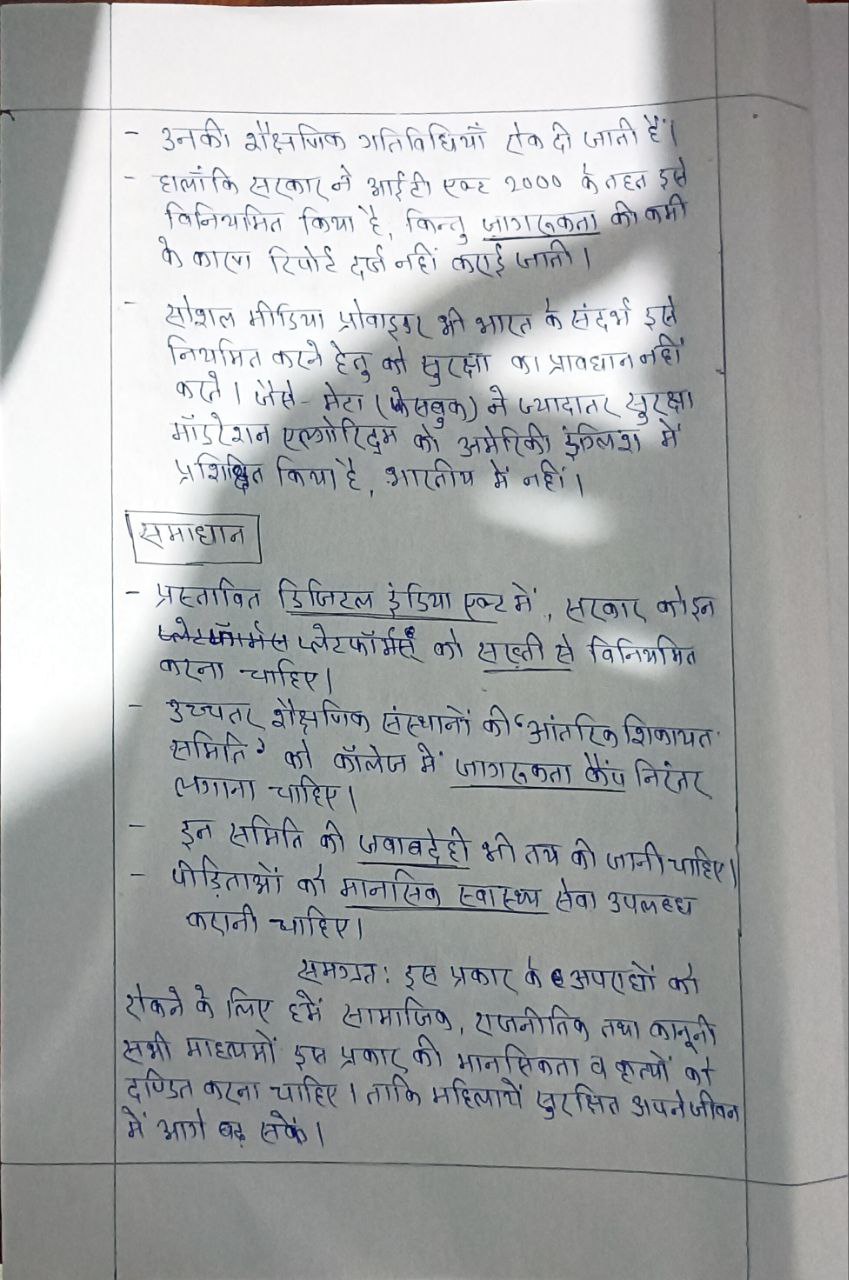 - उनकी शैक्षणिक गतिविधियाँ रोक दी जाती हैं।
- हालाँकि सरकार ने आईटी एक्ट 2000 के तहत इसे
विनियमित किया है, किन्तु जागरूकता की कमी
के कारण रिपोर्ट दर्ज नहीं कराई जाती।
- सोशल मीडिया प्रोवाइडर भी भारत के संदर्भ इसे
नियमित करने हेतु को सुरक्षा का प्रावधान नहीं
करते। जैसे- मेटा (फेसबुक) ने ज्यादातर सुरक्षा
मॉडरेशन एल्गोरिद्म को अमेरिकी इंग्लिश में
प्रशिक्षित किया है, भारतीय में नहीं।
समाधान
- प्रस्तावित डिजिटल इंडिया एक्ट में, सरकार को इन
प्लेटफॉर्मस प्लेटफॉर्मस को सख़्ती से विनियमित
करना चाहिए।
- उच्चतर शैक्षणिक संस्थानों की 'आंतरिक शिकायत
समिति' को कॉलेज में जागरूकता कैंप निरंतर
लगाना चाहिए।
- इन समिति की जवाबदेही भी तय की जानी चाहिए।
- पीड़िताओं को मानसिक स्वास्थ्य सेवा उपलब्ध
करानी चाहिए।
समग्रत: इस प्रकार के अपराधों को
रोकने के लिए हमें सामाजिक, राजनीतिक तथा कानूनी
सभी माध्यमों इस प्रकार की मानसिकता व कृत्यों को
दण्डित करना चाहिए। ताकि महिलायें सुरक्षित अपने जीवन
में आगे बढ़ सकें।